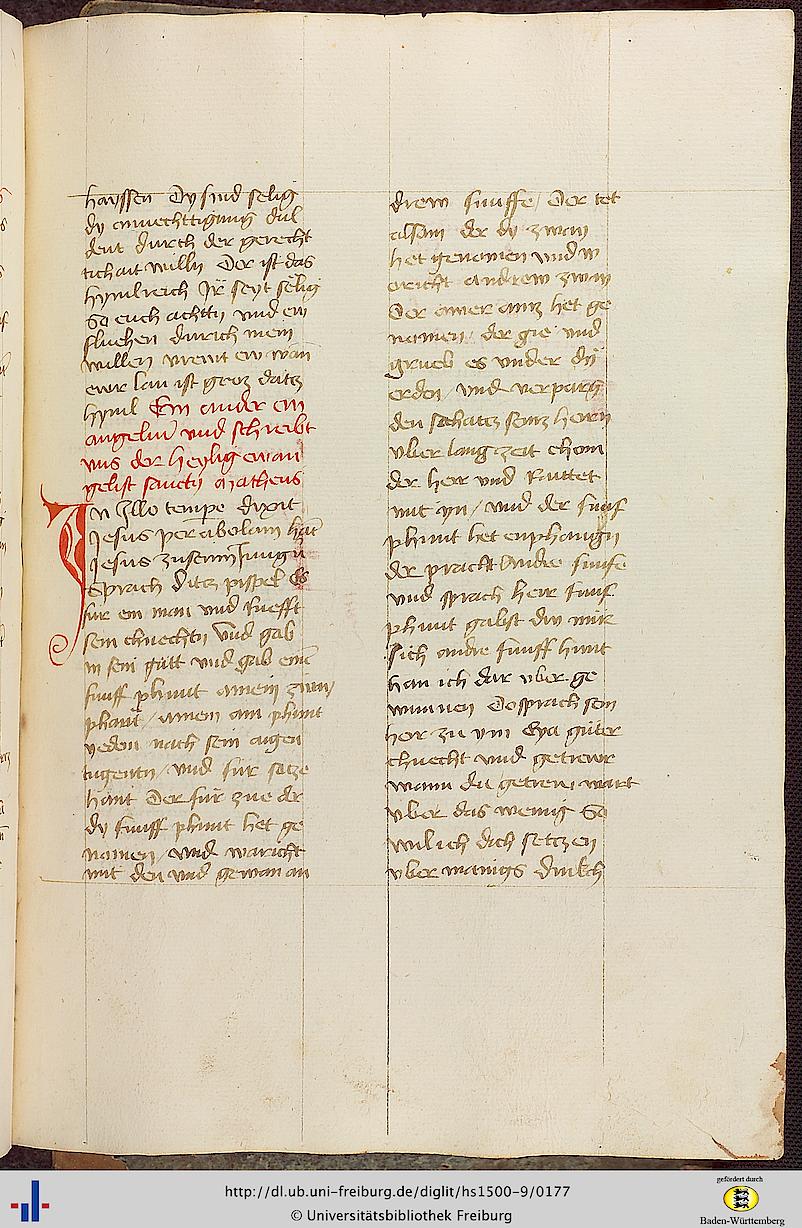 hayssen Dy sind selig
dy anuechttigung dul
dent durch der gerecht
tichait willn Der ist das
hymlreich Jr seyt selig
So euch achttn vnd ew
fluchen durich mein
willen vrewt ew wan
ewr lan ist groz datz
hyml Ein ander ew
angelium vnd schreibt
vns der heylig ewan
gelist sanctus Matheus
In Illo tempe dixit
Jesus perabolam hat
Jesus zu sein Jungn
Sprach ditz pispel Es
fur ein man vnd Ruefft
sein chnechtn Vnd gab
in sein gutt vnd gab eim
funff phunt aineim zway
phant / ainem ain phunt
yedem nach sein aigen
tugentn / vnd fur satze
hant Der fur zue der
dy funff phunt het ge
nomen / vnd waricht
mit den vnd gewan an
drew funffe / Der tet
alsam der dy zway
het genomen vnd w
ericht andrew zway
Der awer ainz het ge
nomen / der gie vnd
grueb es vnder dy
erden / vnd verparg
den schatz seinz herrn
vber lang zeit chom
der herr vnd Raittet
mit yn / vnd der funf
phunt het enphangn
der pracht Andre funfe
vnd sprach herr funf
phunt gabst du mir
Sich andre funff hunt
han ich dar vber ge
wunnen Do sprach sein
herr zu ym Eya guter
chnecht vnd getrewr
wann du getrew wart
vber das wenig So
wil ich dich setczen
vber manigs dinkch
http://dl.ub.uni-freiburg.de/diglit/hs1500-9/0177
© Universitätsbibliothek Freiburg
gefördert durch
Baden-Württemberg